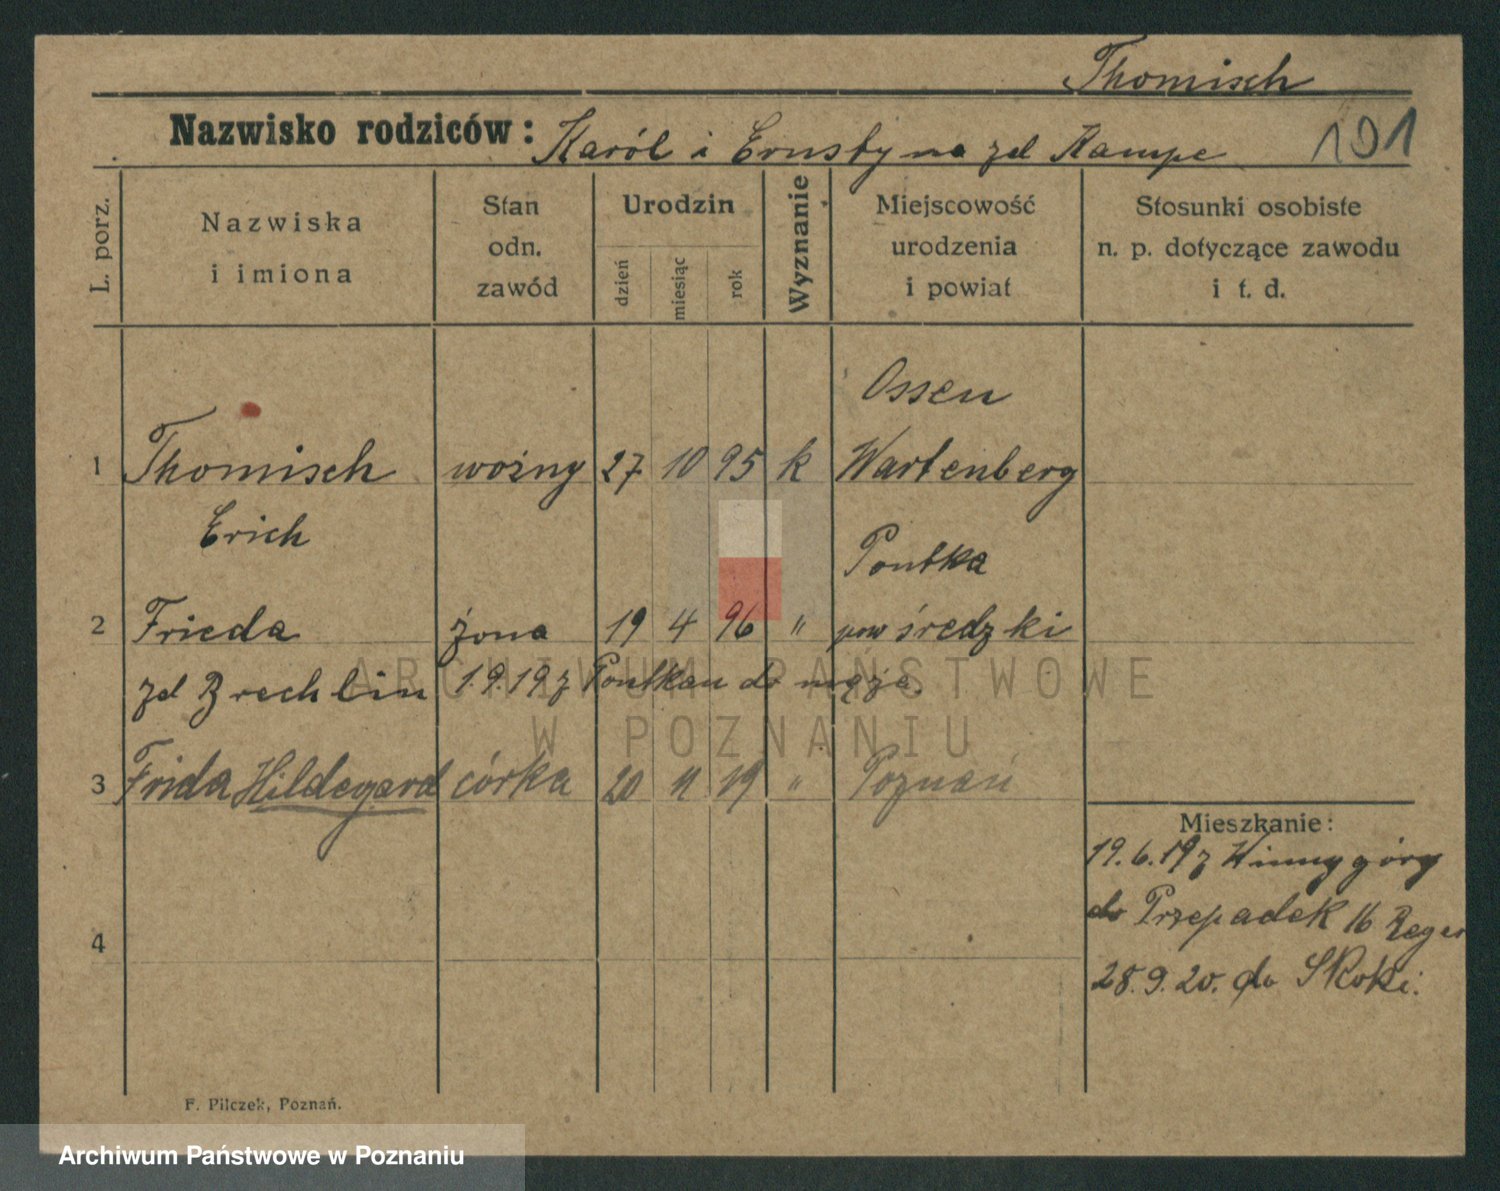 Thomisch
Nazwisko rodziców: Karól i Ernstyna zd Kampe
101
L. porz.
Nazwiska
i imiona
Stan
odn.
zawód
Urodzin
dzień
miesiąc
rok
Wyznanie
Miejscowość
urodzenia
i powiat
Stosunki osobiste
n. p. dotyczące zawodu
i t. d.
Ossen
1 Thomisch woźny 27 10 95 k Wartenberg
Erich
Pontka
2 Frieda żona 19 4 96 " pow średzki
zd Brechlin 1.9.19 z Pontkau do męża.
3 Frida Hildegard córka 20 11 19 " Poznań
Mieszkanie:
19.6.19 z Winnygóry
do Przepadek 16
28.9.20. do Skoki.
4
F. Pilczek, Poznań.
ARCHIWUM PAŃSTWOWE
W POZNANIU
Archiwum Państwowe w Poznaniu